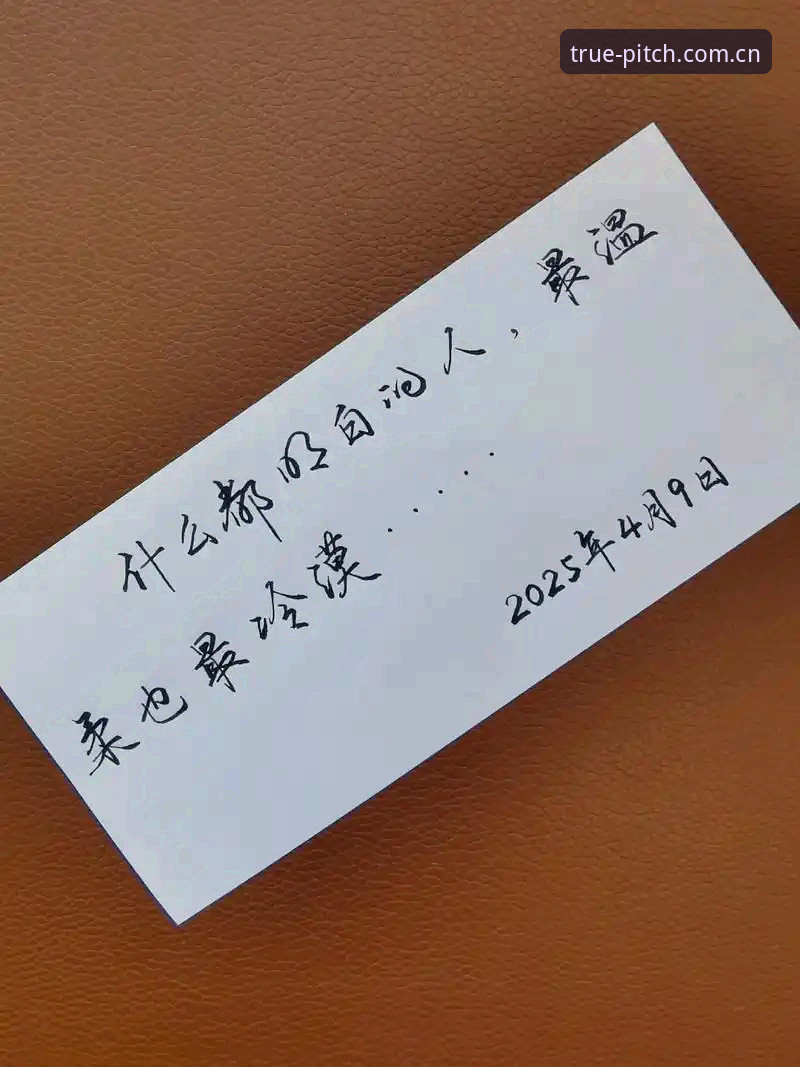 true-pitch.com.cn
什么都明白的人，最温
柔也最冷漠······
2025年4月9日